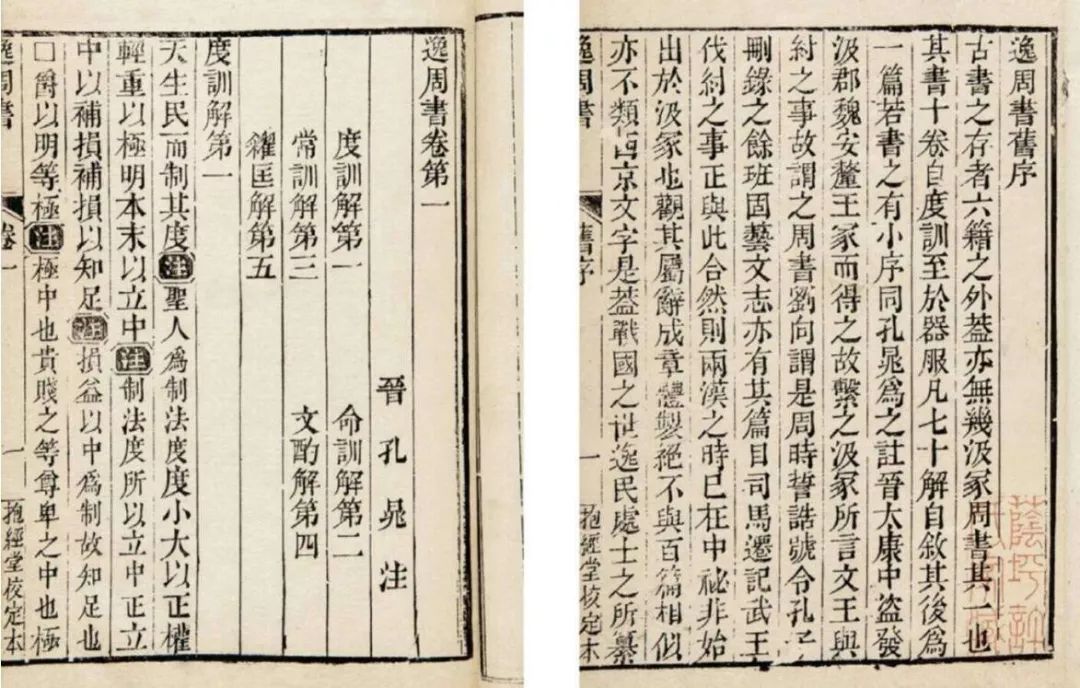 逸周書舊序
古書之存者六籍之外蓋亦無幾汲冢周書其一也
其書十卷自度訓至於器服凡七十解自敘其後爲
一篇若書之有小序同孔晁爲之註晉大康中盜發
汲郡魏安釐王冢而得之故繫之汲冢所言文王與
紂之事故謂之周書劉向謂是周時誓誥號令孔子
刪錄之餘班固藝文志亦有其篇目司馬遷記武王
伐紂之事正與此合然則兩漢之時已在中祕非始
出於汲冢也觀其屬辭成章體製絕不與百篇相似
亦不類西京文字是蓋戰國之世逸民處士之所纂
逸周書 舊序 一 抱經堂校定本
逸周書卷第一
晉孔晁注
度訓解第一 命訓解第二
常訓解第三 文酌解第四
糴匡解第五
度訓解第一
天生民而制其度注聖人爲制法度度小大以正權
輕重以極明本末以立中注制法度所以立中正立
中以補損補損以知足注損益以中爲制故知足也
□爵以明等極注極中也貴賤之等尊卑之中也極
逸周書 卷一 一 抱經堂校定本